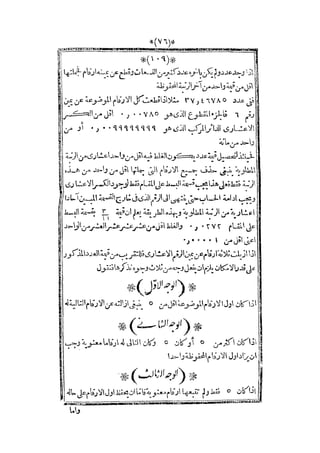 *(٧٦)*
*(١٠٩)*
اذا وجد عدد ولم يكن باخره عدد كثير من الدمعات وقطع عن يمينه ارقام لجهاتها
اقل من قيمة واحد من آخر الرتبة المحفوظة
فى عدد ٣٧٫٤٦٧٨٥ مثلا اذا قطعت كل الارقام الموضوعة عن يمين
رقم ٦ فالجزء المقطوع الذى هو ٠٫٠٠٧٨٥ أقل من الكسر
الاعشارى الدائر المركب الذى هو ٠٫٠٠٩٩٩٩٩٩٩ أو من
واحد من مائة
فحينئذ لتحصيل قيمة عدد يكون الغلط فيه اقل من واحد اعشارى من الرتبة
المطلوبة ينبغى حذف جميع الارقام التى جهاتها اقل من واحد من هذه
الرتبة فقط فعلى هذا يجب قسمة البسط على المقام فقط لوجود الكسر الاعشارى
ويجب ادامة الحساب حتى ينتهى الى الرقم الذى فى خارج القسمة المبين آحادا
اعشارية من الرتبة المطلوبة وبهذه الطريقة يعلم ان قيمة ٣/١١ بقسمة البسط
على المقام ٠٫٢٧٢ والغلط اقل من عشر عشر عشر العشر من الواحد
اعنى اقل من ٠٫٠٠٠١
اذا اريد بثلاثة ارقام عن يمين الرقم الاعشارى فلتقريب من قيمة العدد المذكور
على قدر الامكان يلزم ان يفعل وجه من ثلاث وجوه نذكرها فنقول
*(الوجه الاول)*
اذا كان اول الارقام الموضوعة اقل من ٥ ينبغى ازالته عن الارقام التالية له
*(الوجه الثانى)*
اذا كان اكثر من ٥ أو كان ٥ وكان التالى له ارقاما معنوية وجب
ان يزاد اول الارقام المحفوظة واحدا
*(الوجه الثالث)*
اذا كان ٥ فقط ولم يتبعها ارقام معنوية فاما ان يحفظ اول الارقام على حاله
واما